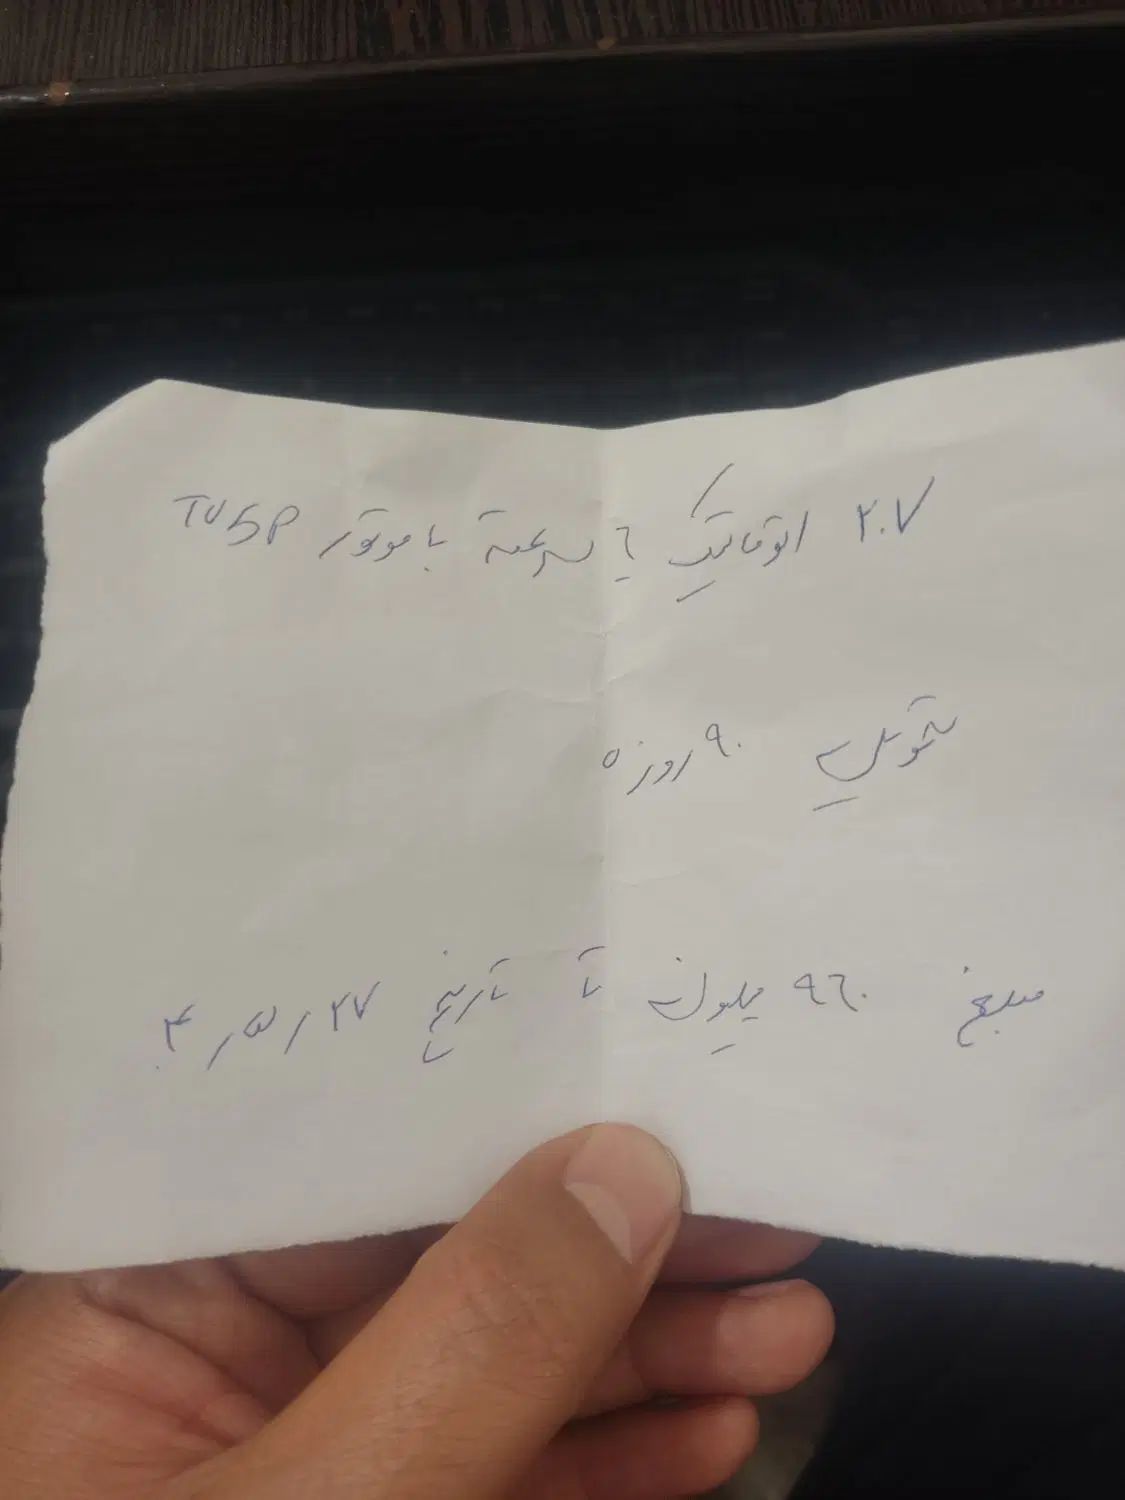 ۲۰۷ اتوماتیک ۶ سرعته با موتور TU5P
تحویل ۹۰ روزه
مبلغ ۹۶۰ میلیون تا تاریخ ۲۷٫۵٫۴۰